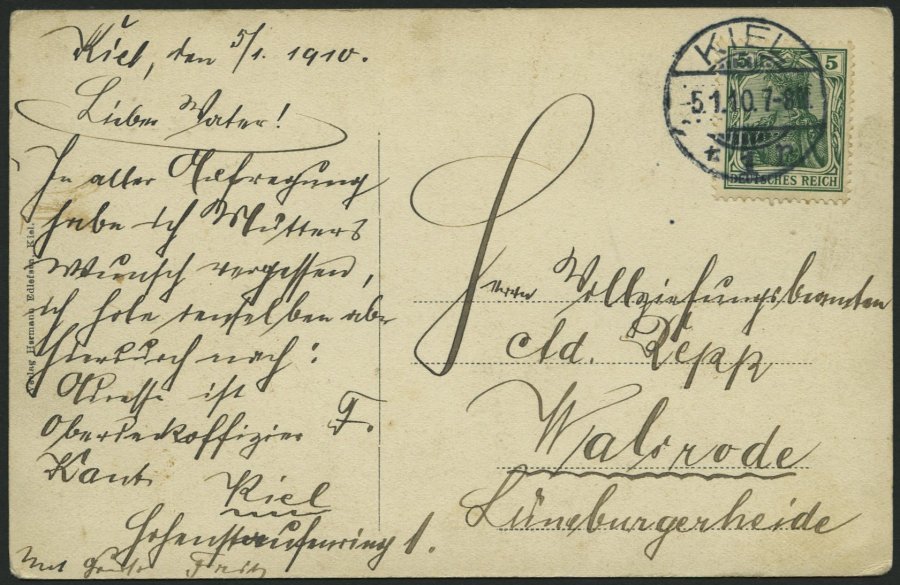 Kiel, den 5/1. 1910.
Lieber Vater!
In aller Aufregung
habe ich Mutters
Wunsch vergessen,
ich hole denselben aber
hierdurch nach:
Adresse ist
Oberdeckoffizier F.
Kant
Kiel
Hohenstaufenring 1.
Mit Gruß Fritz
Verlag Hermann Edlefsen, Kiel.
KIEL
5.1.10.7-8N.
* 1
5 5
DEUTSCHES REICH
Herrn Vollziehungsbeamten
Ad. Depp
Walsrode
Lüneburgerheide